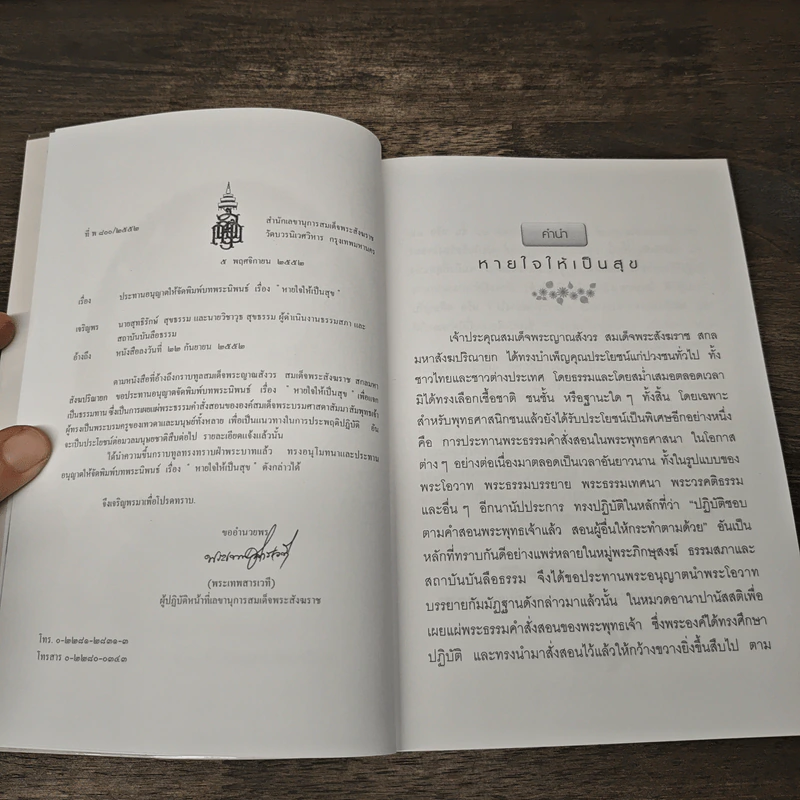 ที่ พ ๘๐๐/๒๕๕๒
สำนักเลขานุการสมเด็จพระสังฆราช
วัดบวรนิเวศวิหาร กรุงเทพมหานคร
๕ พฤศจิกายน ๒๕๕๒
เรื่อง ประทานอนุญาตให้จัดพิมพ์บทพระนิพนธ์ เรื่อง " หายใจให้เป็นสุข "
เจริญพร นายสุทธิรักษ์ สุขธรรม และนายวิชาวุธ สุขธรรม ผู้ดำเนินงานธรรมสภา และ
สถาบันบันลือธรรม
อ้างถึง หนังสือลงวันที่ ๒๒ กันยายน ๒๕๕๒
ตามหนังสือที่อ้างถึงกราบทูลสมเด็จพระญาณสังวร สมเด็จพระสังฆราช สกลมหา
สังฆปริณายก ขอประทานอนุญาตจัดพิมพ์บทพระนิพนธ์ เรื่อง " หายใจให้เป็นสุข " เพื่อแจก
เป็นธรรมทาน ซึ่งเป็นการเผยแผ่พระธรรมคำสั่งสอนขององค์สมเด็จพระบรมศาสดาสัมมาสัมพุทธเจ้า
ผู้ทรงเป็นพระบรมครูของเทวดาและมนุษย์ทั้งหลาย เพื่อเป็นแนวทางในการประพฤติปฏิบัติ อัน
จะเป็นประโยชน์ต่อมวลมนุษยชาติสืบต่อไป รายละเอียดแจ้งแล้วนั้น
ได้นำความขึ้นกราบทูลทรงทราบฝ่าพระบาทแล้ว ทรงอนุโมทนาและประทาน
อนุญาตให้จัดพิมพ์บทพระนิพนธ์ เรื่อง " หายใจให้เป็นสุข " ดังกล่าวได้
จึงเจริญพรมาเพื่อโปรดทราบ.
ขออำนวยพร
(พระเทพสารเวที)
ผู้ปฏิบัติหน้าที่เลขานุการสมเด็จพระสังฆราช
โทร. ๐-๒๒๘๑-๒๘๓๑-๓
โทรสาร ๐-๒๒๘๐-๐๓๔๓
คำนำ
หายใจให้เป็นสุข
เจ้าประคุณสมเด็จพระญาณสังวร สมเด็จพระสังฆราช สกล
มหาสังฆปริณายก ได้ทรงบำเพ็ญคุณประโยชน์แก่ปวงชนทั่วไป ทั้ง
ชาวไทยและชาวต่างประเทศ โดยธรรมและโดยสม่ำเสมอตลอดเวลา
มิได้ทรงเลือกเชื้อชาติ ชนชั้น หรือฐานะใด ๆ ทั้งสิ้น โดยเฉพาะ
สำหรับพุทธศาสนิกชนแล้วยังได้รับประโยชน์เป็นพิเศษอีกอย่างหนึ่ง
คือ การประทานพระธรรมคำสั่งสอนในพระพุทธศาสนา ในโอกาส
ต่าง ๆ อย่างต่อเนื่องมาตลอดเป็นเวลาอันยาวนาน ทั้งในรูปแบบของ
พระโอวาท พระธรรมบรรยาย พระธรรมเทศนา พระวรคติธรรม
และอื่น ๆ อีกนานัปประการ ทรงปฏิบัติในหลักที่ว่า "ปฏิบัติชอบ
ตามคำสอนพระพุทธเจ้าแล้ว สอนผู้อื่นให้กระทำตามด้วย" อันเป็น
หลักที่ทราบกันดีอย่างแพร่หลายในหมู่พระภิกษุสงฆ์ ธรรมสภาและ
สถาบันบันลือธรรม จึงได้ขอประทานพระอนุญาตนำพระโอวาท
บรรยายกัมมัฏฐานดังกล่าวมาแล้วนั้น ในหมวดอานาปานัสสติเพื่อ
เผยแผ่พระธรรมคำสั่งสอนของพระพุทธเจ้า ซึ่งพระองค์ได้ทรงศึกษา
ปฏิบัติ และทรงนำมาสั่งสอนไว้แล้วให้กว้างขวางยิ่งขึ้นสืบไป ตาม